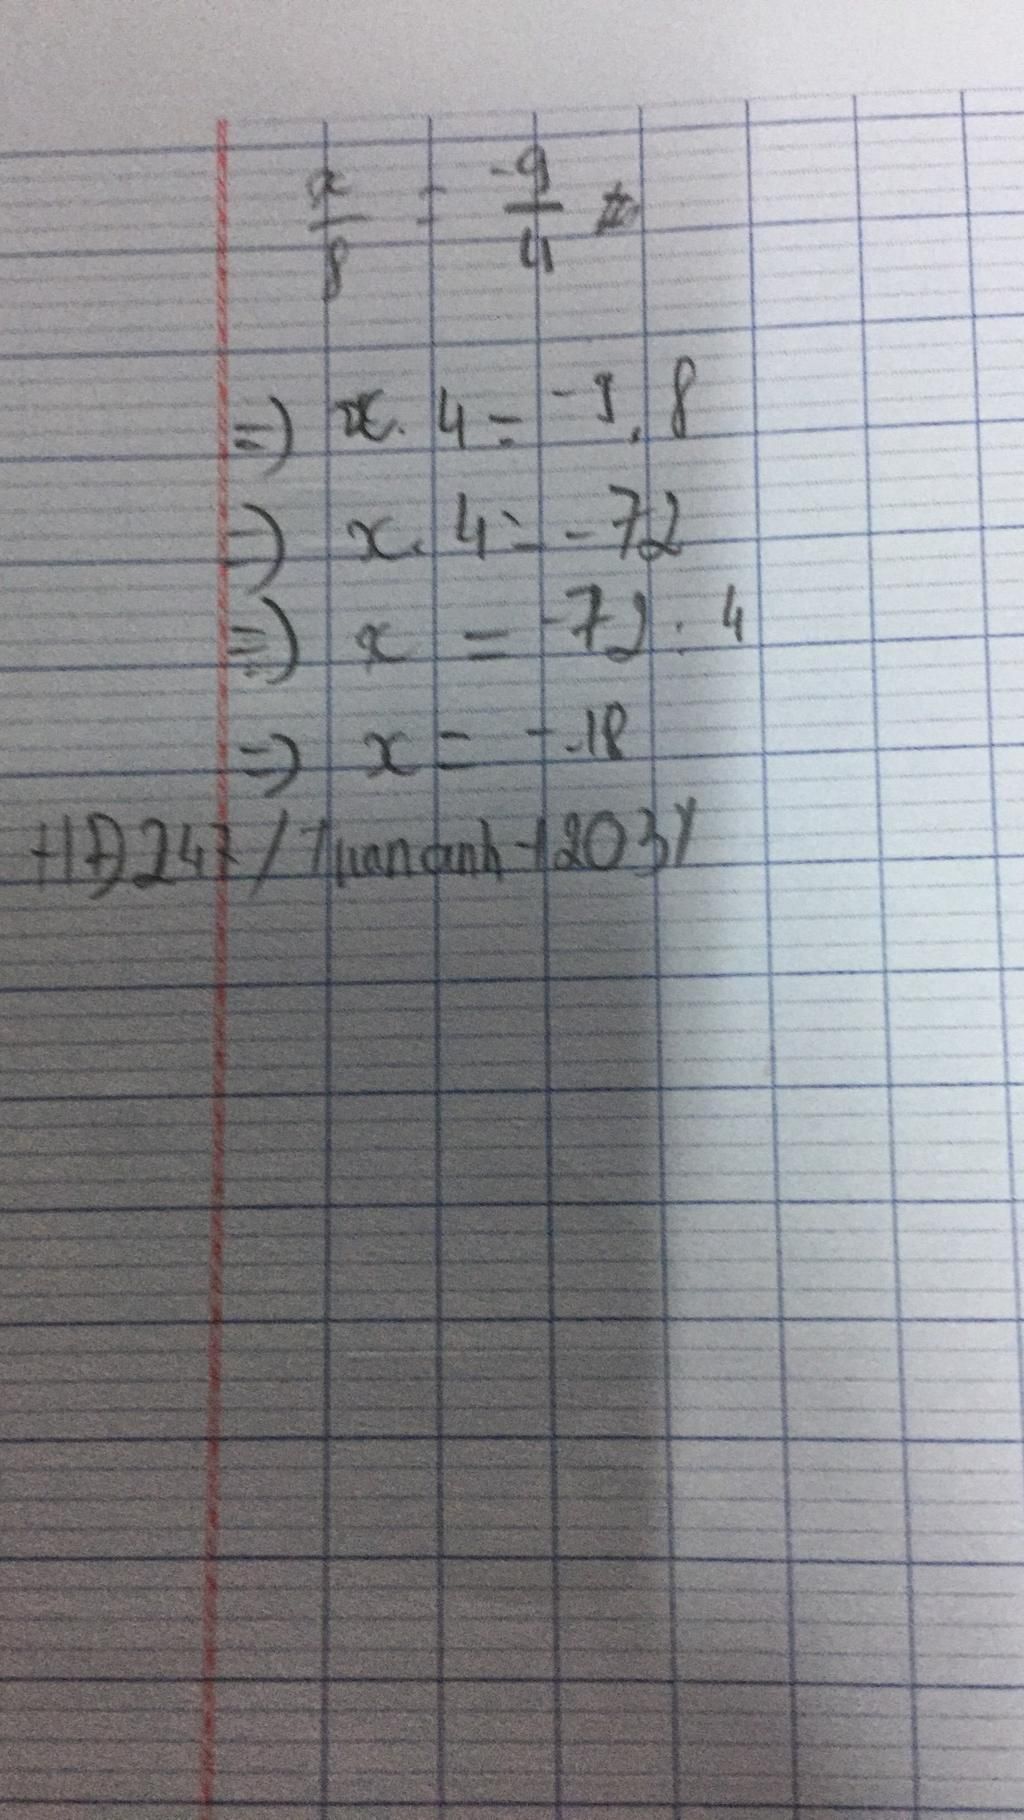 x/8 = -9/4
=) x. 4 = -9. 8
=) x. 4 = -72
=) x = -72. 4
=) x = -18
247 / Tuananh-12034